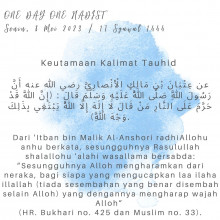 ONE DAY ONE HADIST
Senin, 8 Mei 2023 / 17 Syawal 1444
Keutamaan Kalimat Tauhid
عن عِتْبَانَ بْنِ مَالِكٍ الْأَنْصَارِيِّ رضي الله عنه أَنَّ
رَسُولَ اللَّهِ صَلَّى اللَّهُ عَلَيْهِ وَسَلَّمَ قَالَ : (إِنَّ اللَّهَ قَدْ
حَرَّمَ عَلَى النَّارِ مَنْ قَالَ لَا إِلَهَ إِلَّا اللَّهُ يَبْتَغِي بِذَلِكَ
وَجْهَ اللَّهِ)
Dari 'Itban bin Malik Al-Anshori radhiAllohu
anhu berkata, sesungguhnya Rasulullah
shalallohu 'alahi wasallama bersabda:
"Sesungguhnya Alloh mengharamkan dari
neraka, bagi siapa yang mengucapkan laa ilaha
illallah (tiada sesembahan yang benar disembah
selain Alloh) yang dengannya mengharap wajah
Alloh"
(HR. Bukhari no. 425 dan Muslim no. 33).